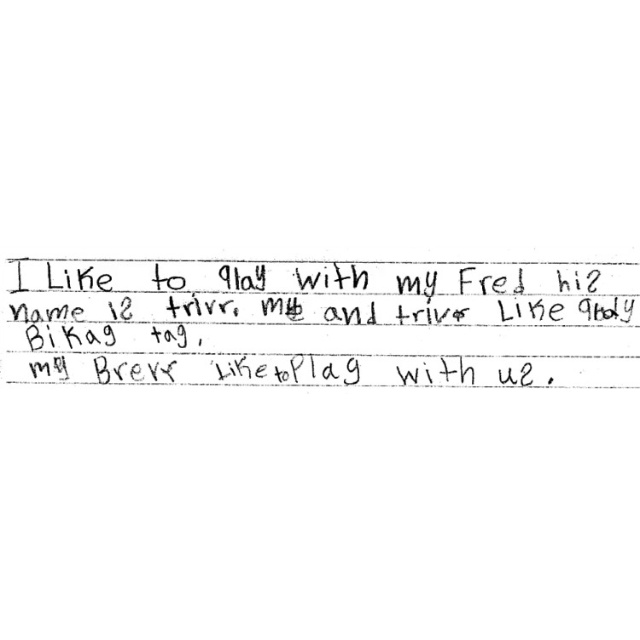 I Like to play with my Fred his
name is trivr. me and trivr Like play
Bikag tag.
my Brevr Like to Plag with us.